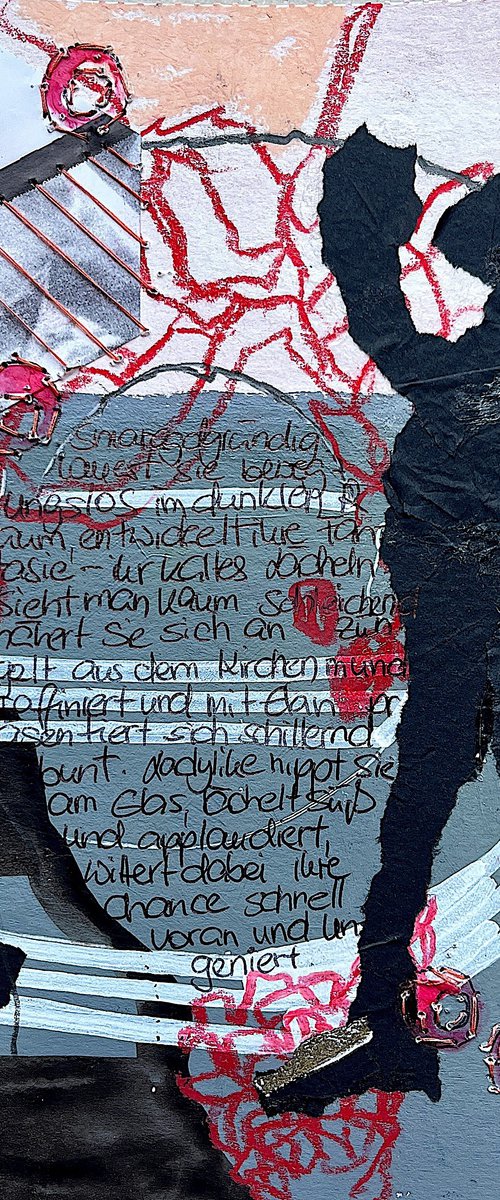 smaragdgründig
lauert sie beweg
ungslos im dunklen R
aum, entwickelt ihre Fan
tasie - ihr kaltes lächeln
sieht man kaum Schleichend
nähert sie sich an zün
gelt aus dem Kirschenmund
raffiniert und mit Elan pr
äsentiert sich schillernd
bunt. ladylike nippt sie
am Glas, lächelt süß
und applaudiert,
wittert dabei ihre
chance schnell
voran und un
geniert